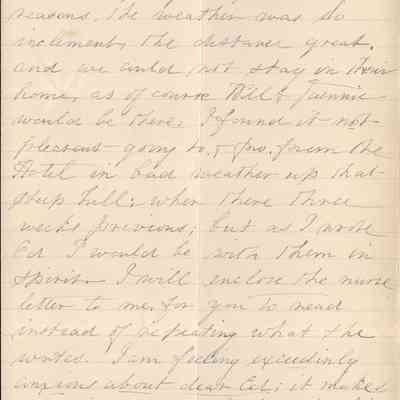 reasons. The weather was so
inclement, the distance great,
and we could not stay in their
home, as of course Will & Jennie
would be there. I found it not
pleasant going to & fro. from the
Hotel in bad weather up that
steep hill, when there three
weeks previous; but as I wrote
Ed I would be with them in
spirit. I will enclose the nurse
letter to me, for you to read
instead of repeating what she
writes. I am feeling exceedingly
anxious about dear Ed; it makes